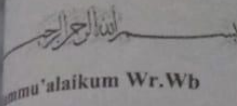 بسم الله الرحمن الرحيم
ammu'alaikum Wr.Wb